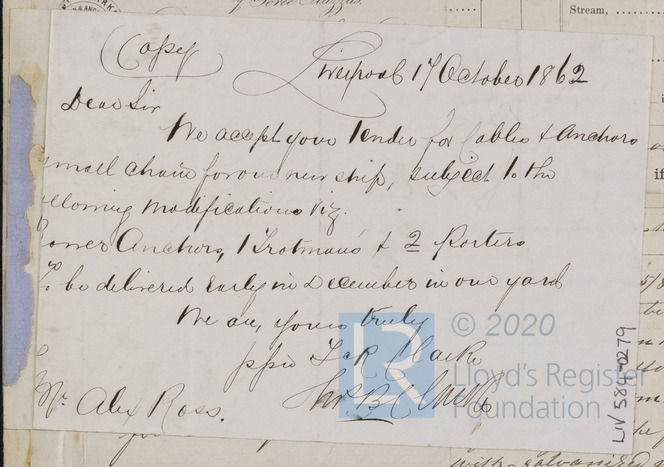 Stream,
Copy
Liverpool 17 October 1862
Dear Sir
We accept your tender for Cables & Anchors
small chain for our new ship, subject to the
following modifications viz.
Bower Anchors, 1 Trotmans & 2 Porters
To be delivered early in December in our yard
We are, yours truly
ppro T & R Clarke
Mr. Alex Ross.
© 2020
Lloyd's Register
Foundation
LIV 584-0279